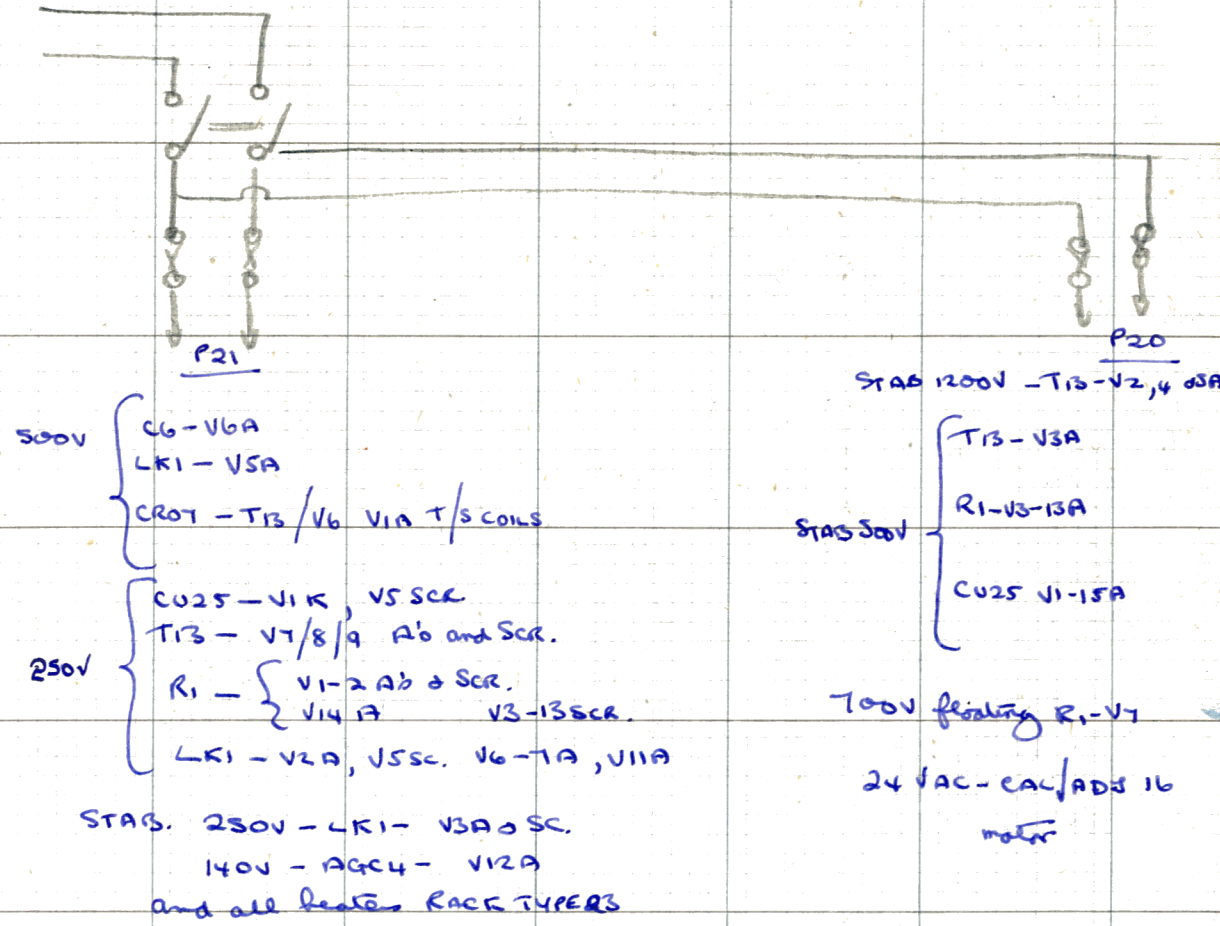 P21
500V
C6-V6A
LK1 - V5A
CRO7 - T13/V6 V1A T/S COILS
250V
CU25 - V1K, V5 SCR
T13 - V7/8/9 A's and SCR.
R1 - V1-2 A's & SCR.
V14 A V3-13 SCR.
LK1 - V2A, V5SC. V6-7A, V11A
STAB. 250V - LK1 - V3A & SC.
140V - AGC4 - V12A
and all heaters RACK TYPE R3
P20
STAB 1200V - T13 - V2,4
T13 - V3A
STAB 500V
R1-V3-13A
CU25 V1-15A
700V floating R1-V7
24 VAC - CAL/ADJ 16
motor